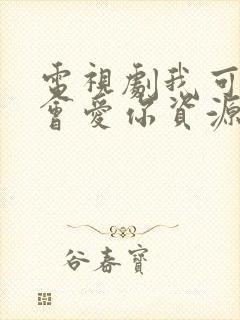 電視劇我可
會愛你資源
谷春寶